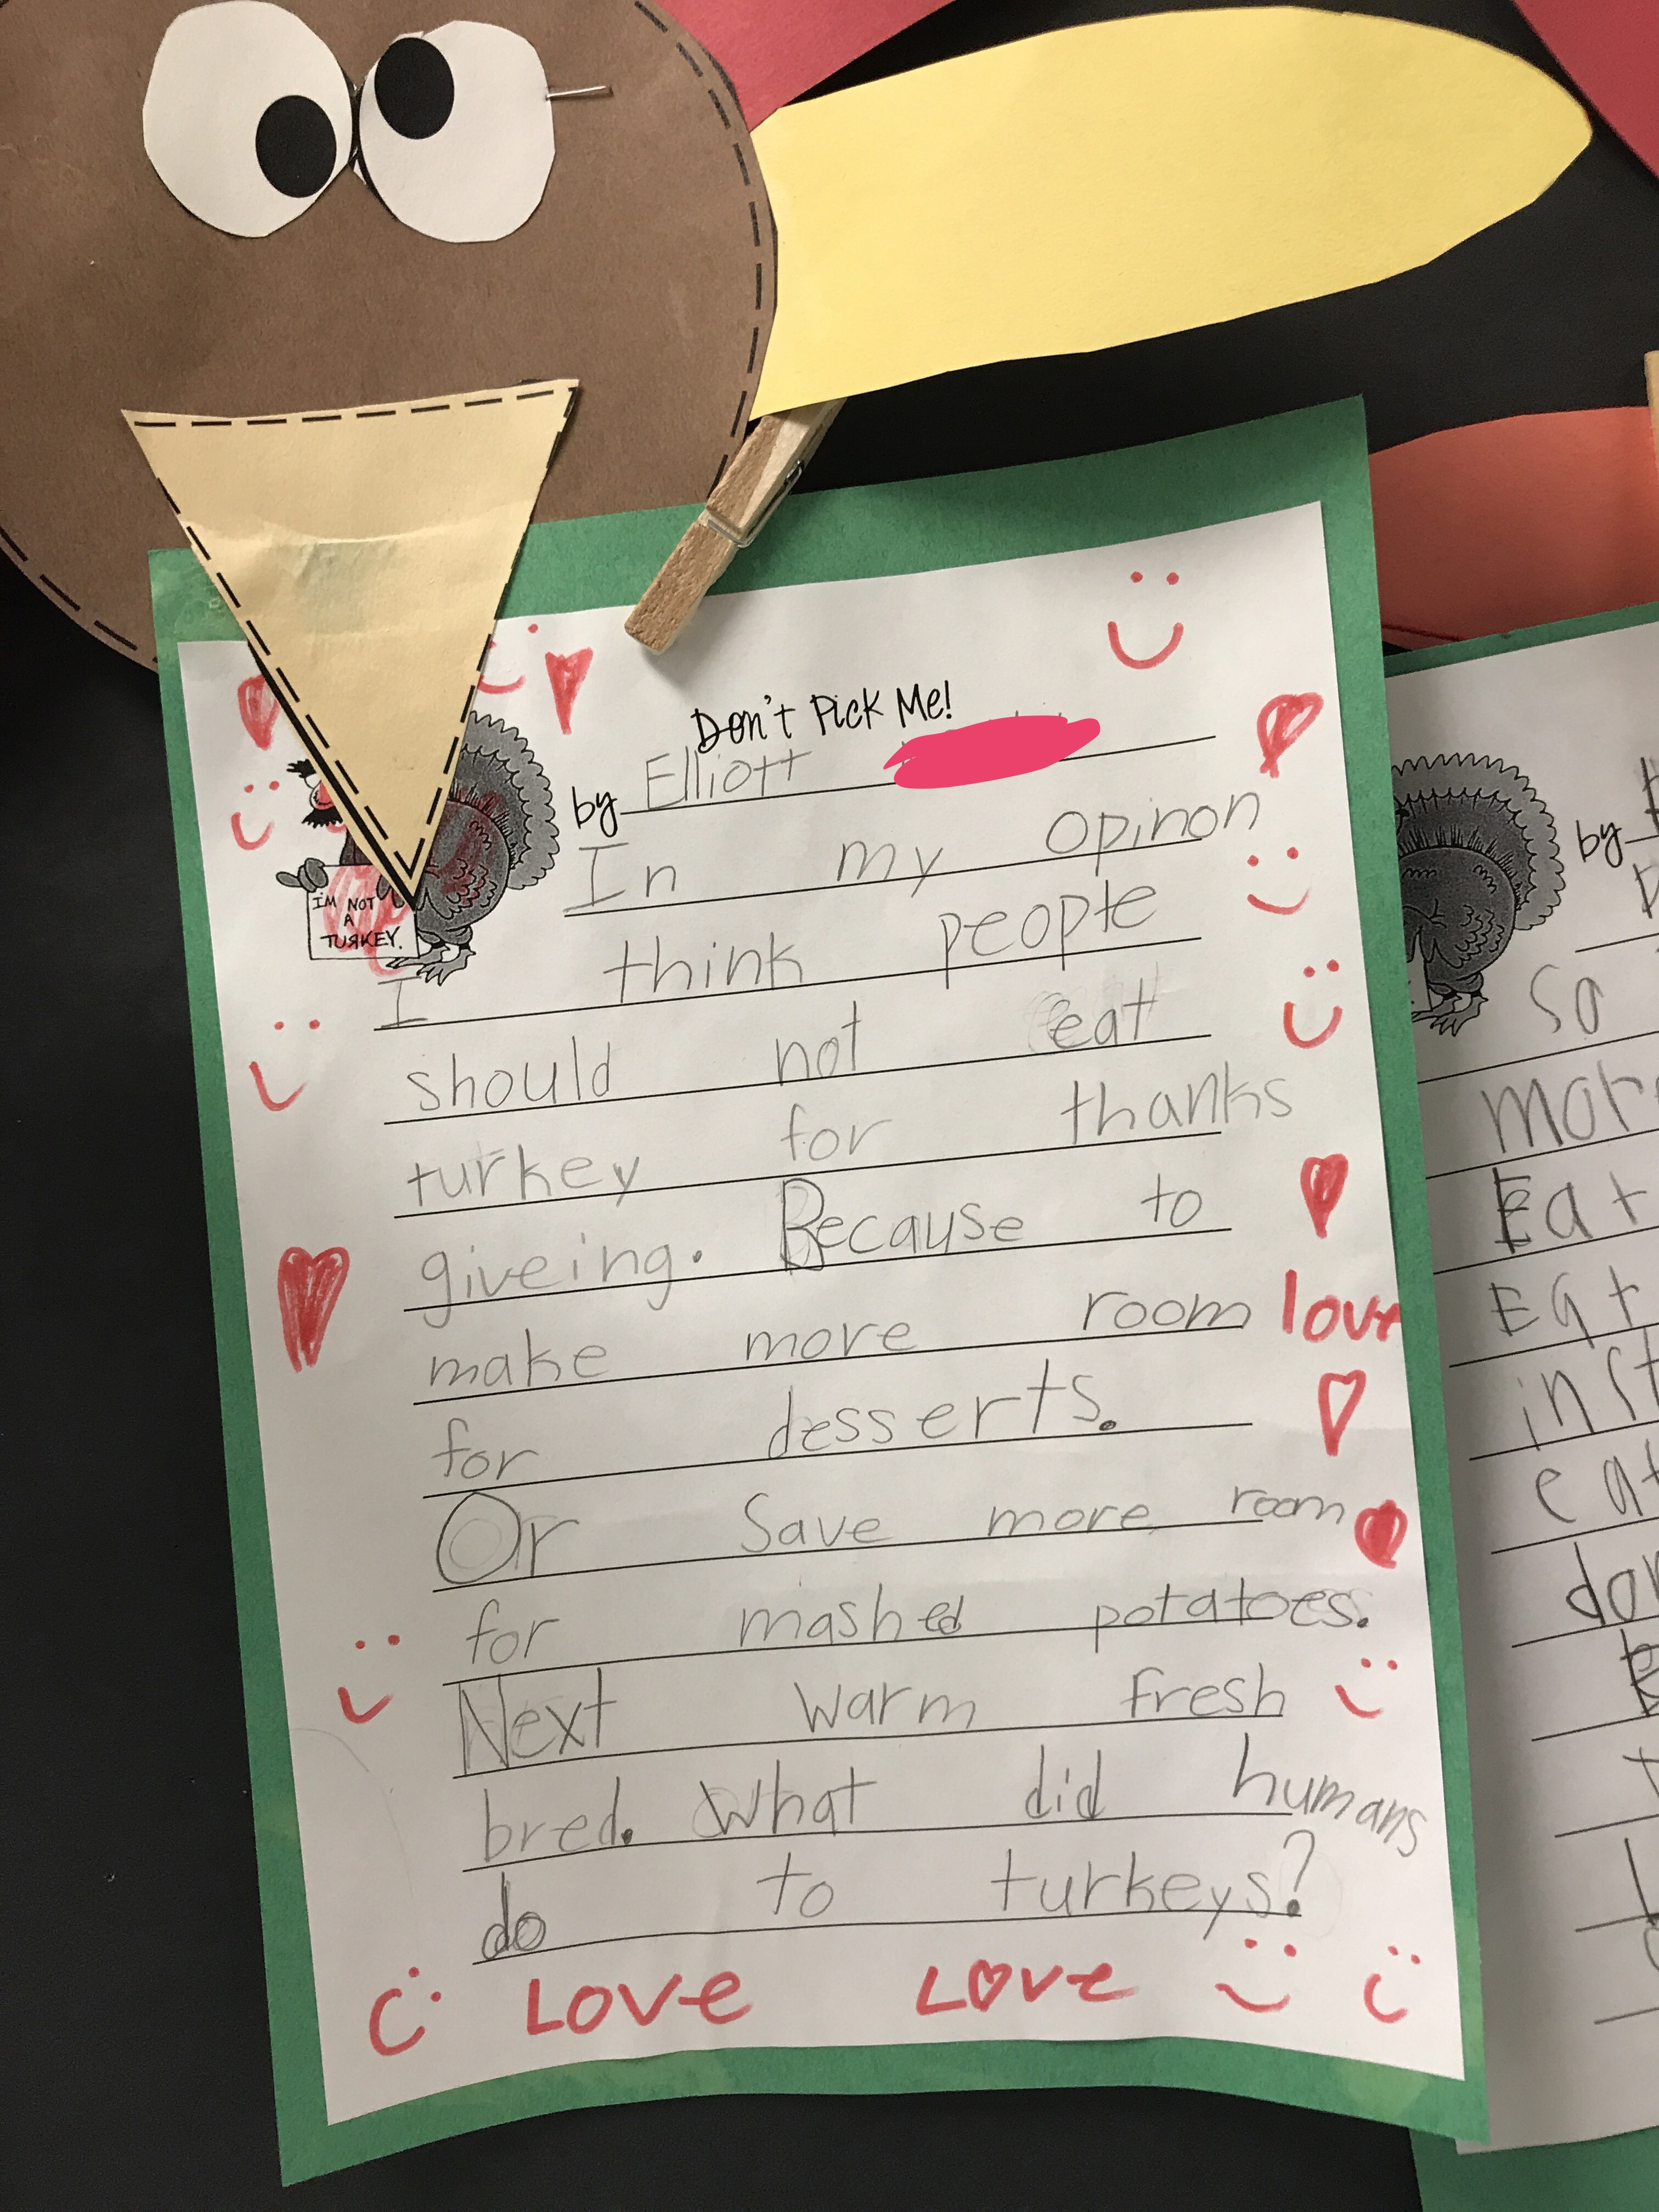 Don't Pick Me!
by Elliott
In my opinon
I think people
should not eat
turkey for thanks
giveing. Because to
make more room
for desserts.
Or Save more room
for mashed potatoes.
Next warm fresh
bred. What did humans
do to turkeys?
I'M NOT
A
TURKEY.
love
Love Love
by
so
Eat
Eat